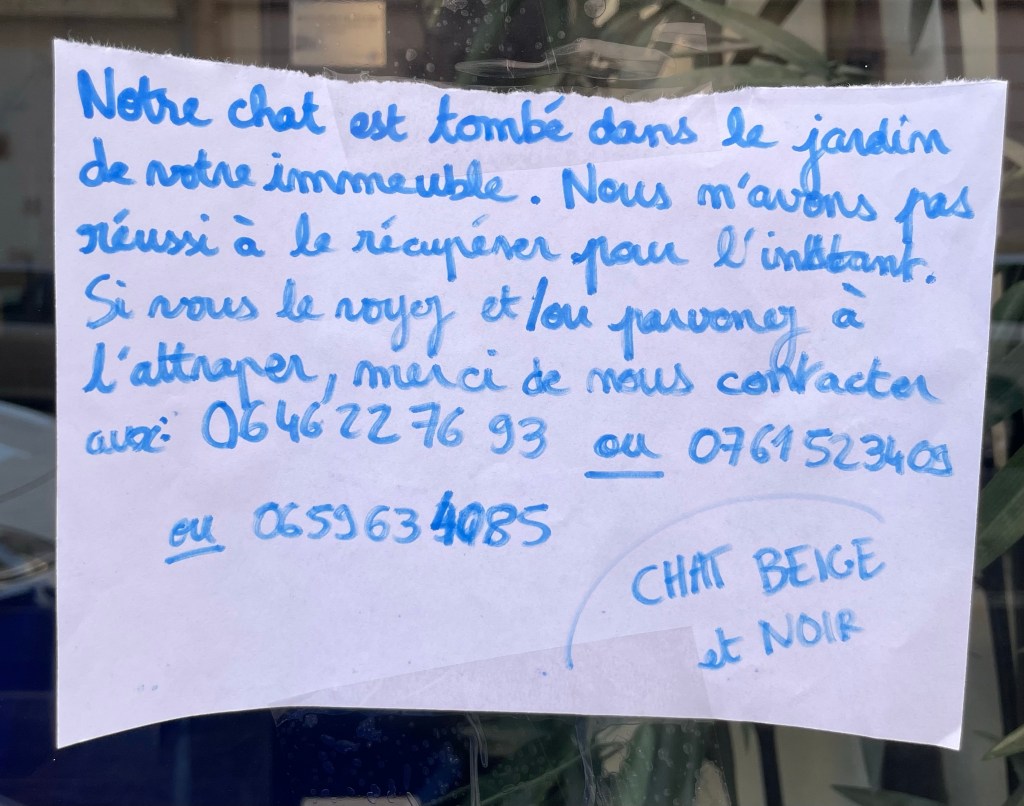 Notre chat est tombé dans le jardin
de votre immeuble. Nous n'avons pas
réussi à le récupérer pour l'instant.
Si vous le voyez et/ou parvenez à
l'attraper, merci de nous contacter
aux: 06 46 22 76 93 ou 0761523409
ou 0659634085
CHAT BEIGE
et NOIR